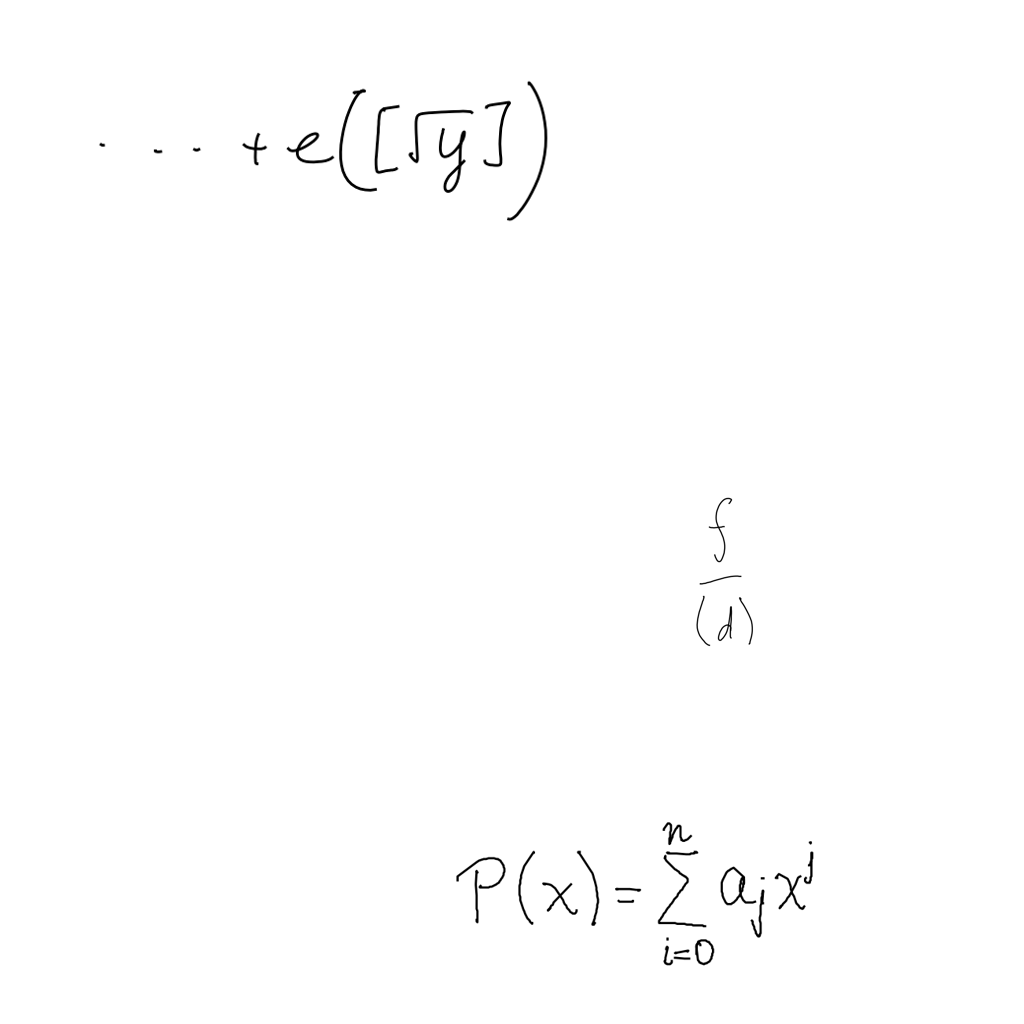 \cdots + e([\sqrt{y}])
\frac{f}{(d)}
P(x) = \sum_{i=0}^{n} a_j x^j